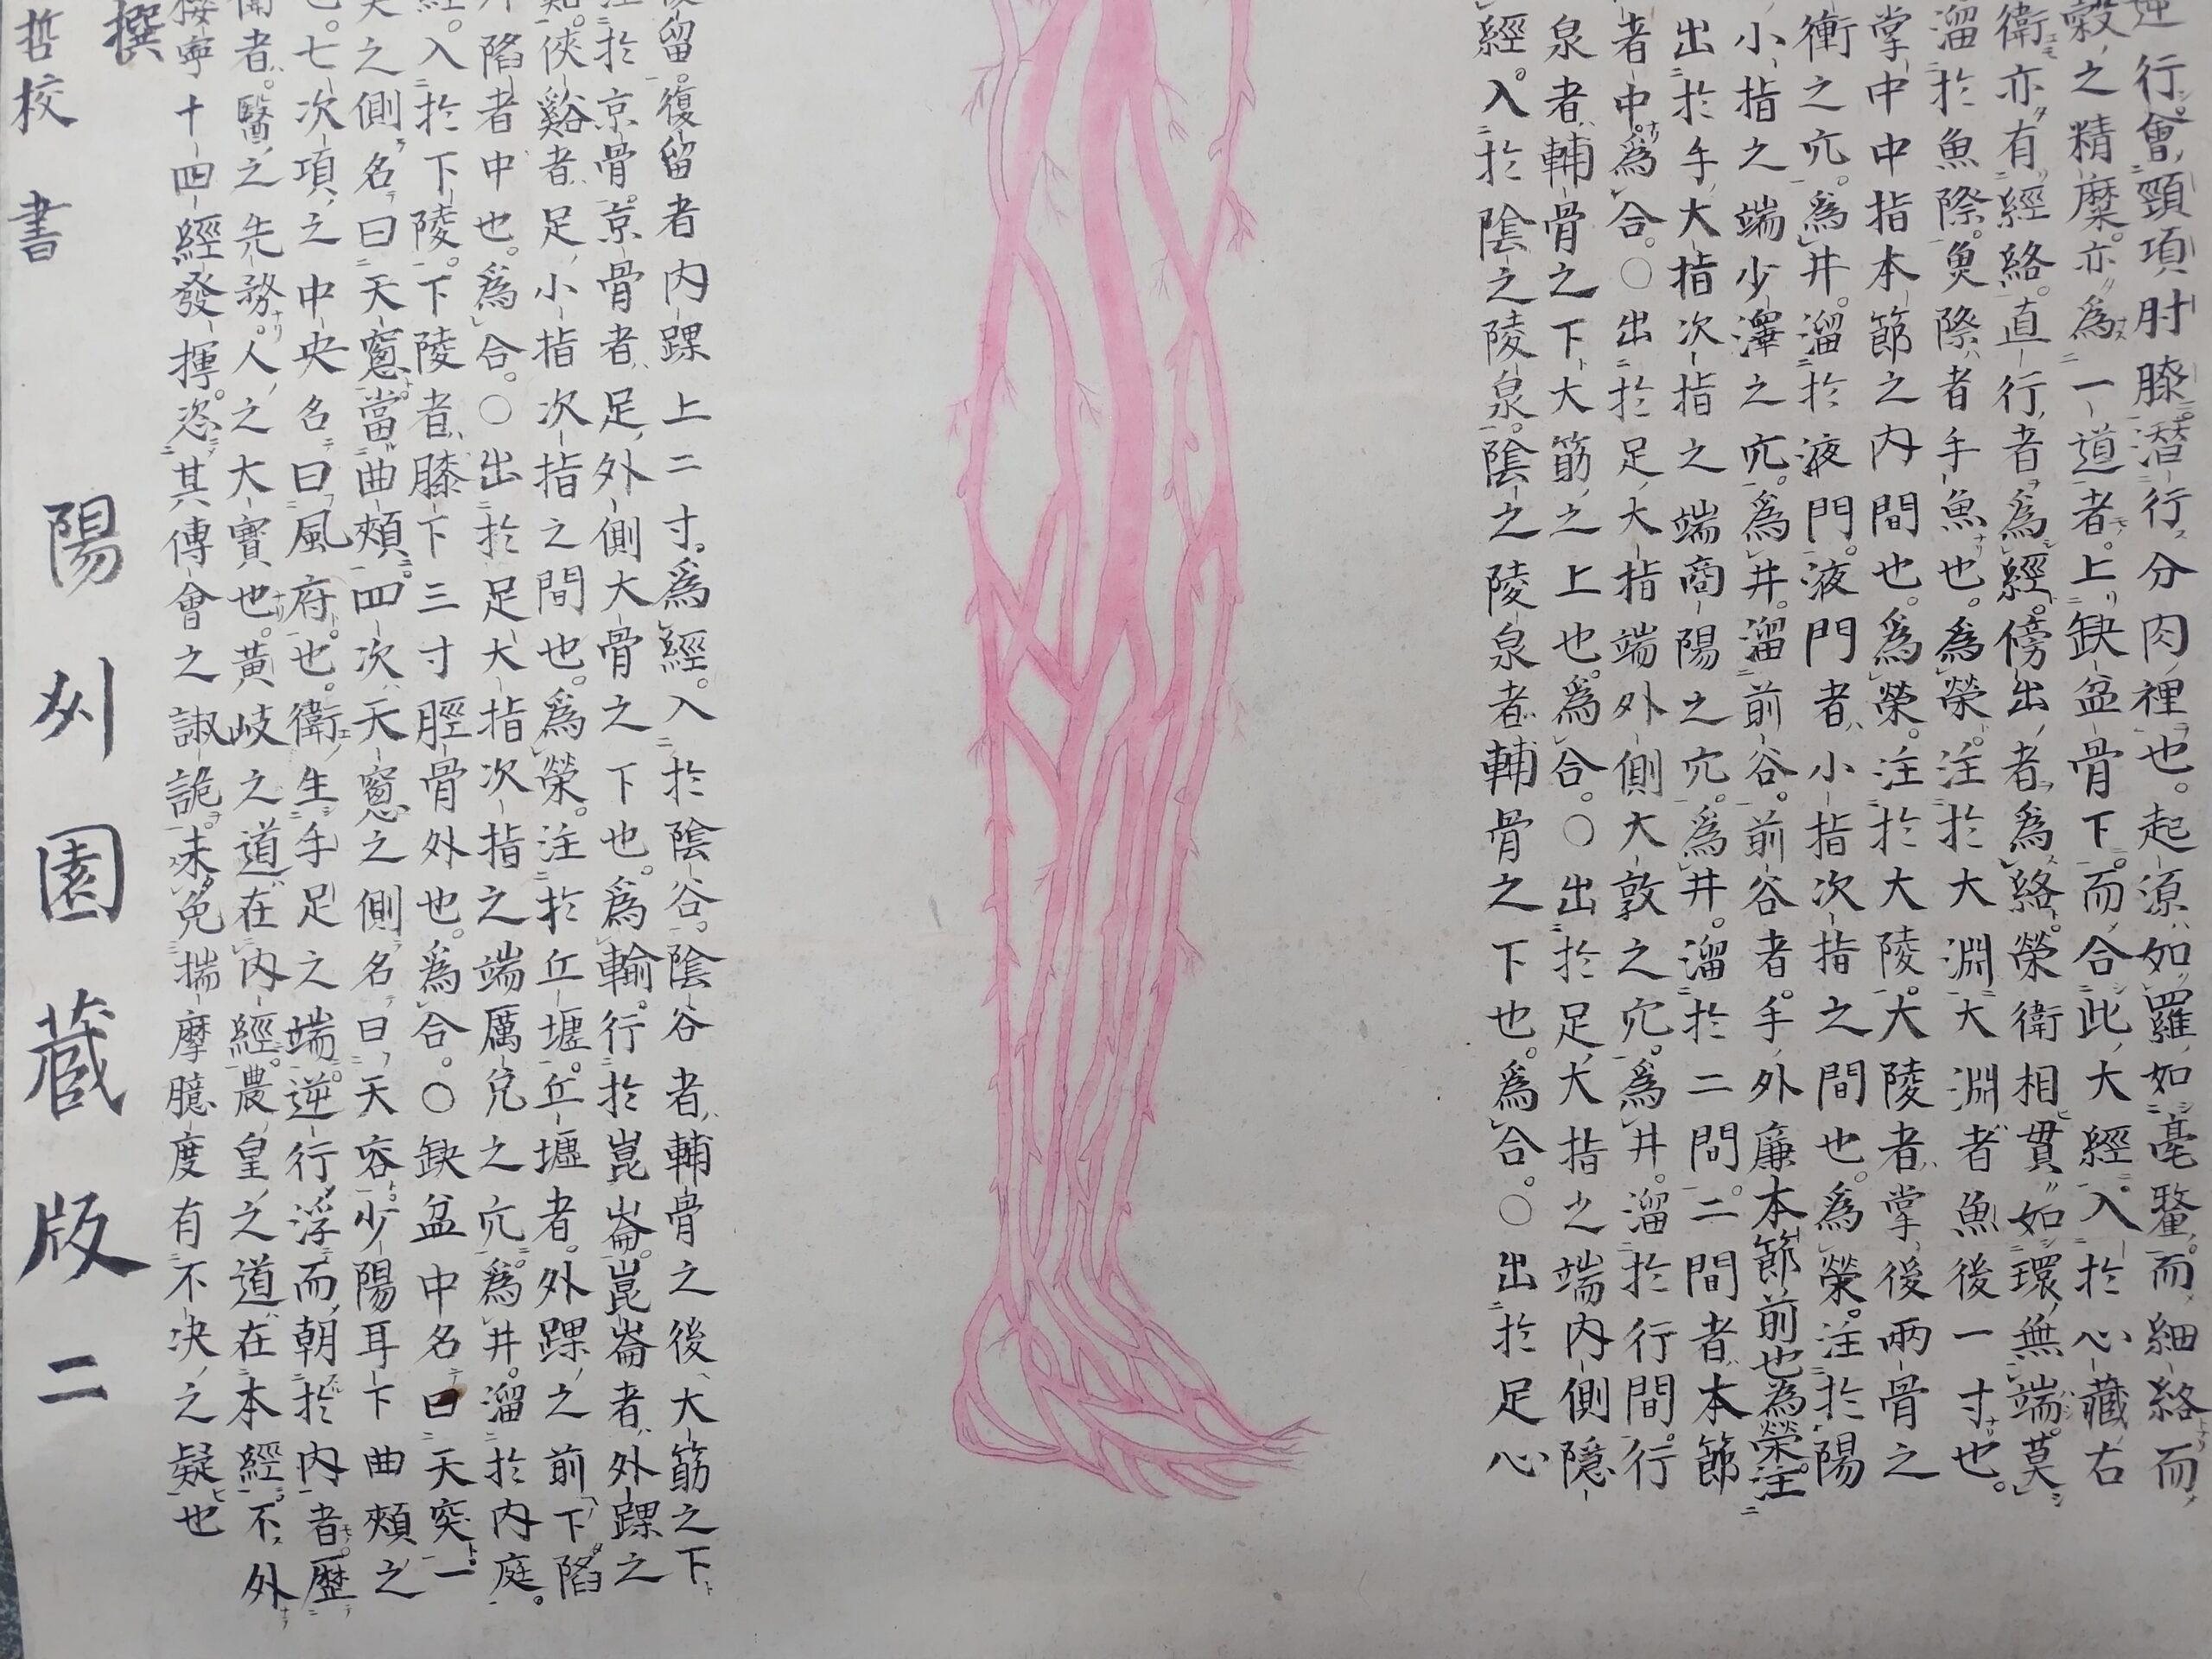 逆行會頸項肘膝潜行分肉裡也。起源如羅如毫釐。而細絡而
穀之精糜。亦為一道者。上缺盆骨下。而合此大經入於心藏右
衛亦有經絡。直行者為經。傍出者為絡。榮衛相貫如環無端。莫
溜於魚際。魚際者手魚也。為榮。注於大淵大淵者魚後一寸也。
掌中中指本節之内間也。為榮。注於大陵。大陵者掌後兩骨之
衝之宂。為井。溜於液門。液門者小指次指之間也。為榮。注於陽
小指之端少澤之宂。為井。溜前谷。前谷者。手外廉本節前也為榮。注
出於手大指次指之端商陽之宂。為井。溜於二間。二間者本節
者中。為合。○出於足大指端外側大敦之宂。為井。溜於行間。行
泉者輔骨之下大筋之上也。為合。○出於足大指之端内側隠
經。入於陰之陵泉。陰之陵泉者輔骨之下也。為合。○出於足心
留。復留者内踝上二寸。為經。入於陰谷。陰谷者輔骨之後大筋之下
於京骨。京骨者足外側大骨之下也。為輸。行於崑崙。崑崙者外踝之
俠谿者足小指次指之間也。為榮。注於丘墟。丘墟者。外踝之前下陷
陷者中也。為合。○出於足大指次指之端厲兌之宂。為井。溜於内庭。
入於下陵。下陵者膝下三寸脛骨外也。為合。○缺盆中名曰天突一
之側名曰天窻當曲頰。四次天窻之側名曰天容。少陽耳下曲頰之
七次項之中央名曰風府也。衛生手足之端。逆行浮而朝於内者歷
者。醫之先務。人之大寶也。黄岐之道在内經。農皇之道在本經。不外
寧十四經發揮。恣其傳會之詖詭。未免揣摩臆度有不决之疑也
撰
哲校書
陽刕園蔵版二